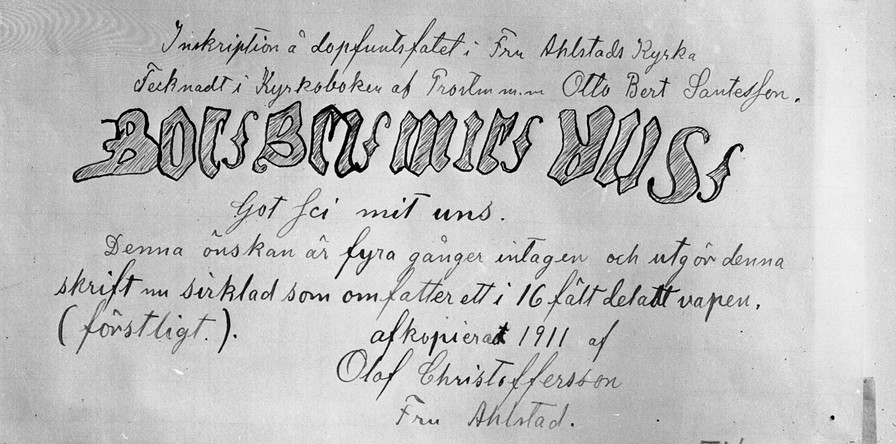 Inskription å dopfuntsfatet i Fru Ahlstads Kyrka
Tecknadt i Kyrkoboken af Prosten m.m Otto Bert Santesson.
Got sei mit uns.
Denna önskan är fyra gånger intagen och utgör denna
skrift nu sirklad som omfatter ett i 16 fält delatt vapen.
(förstligt.).
afkopierat 1911 af
Olof Christoffersson
Fru Ahlstad.